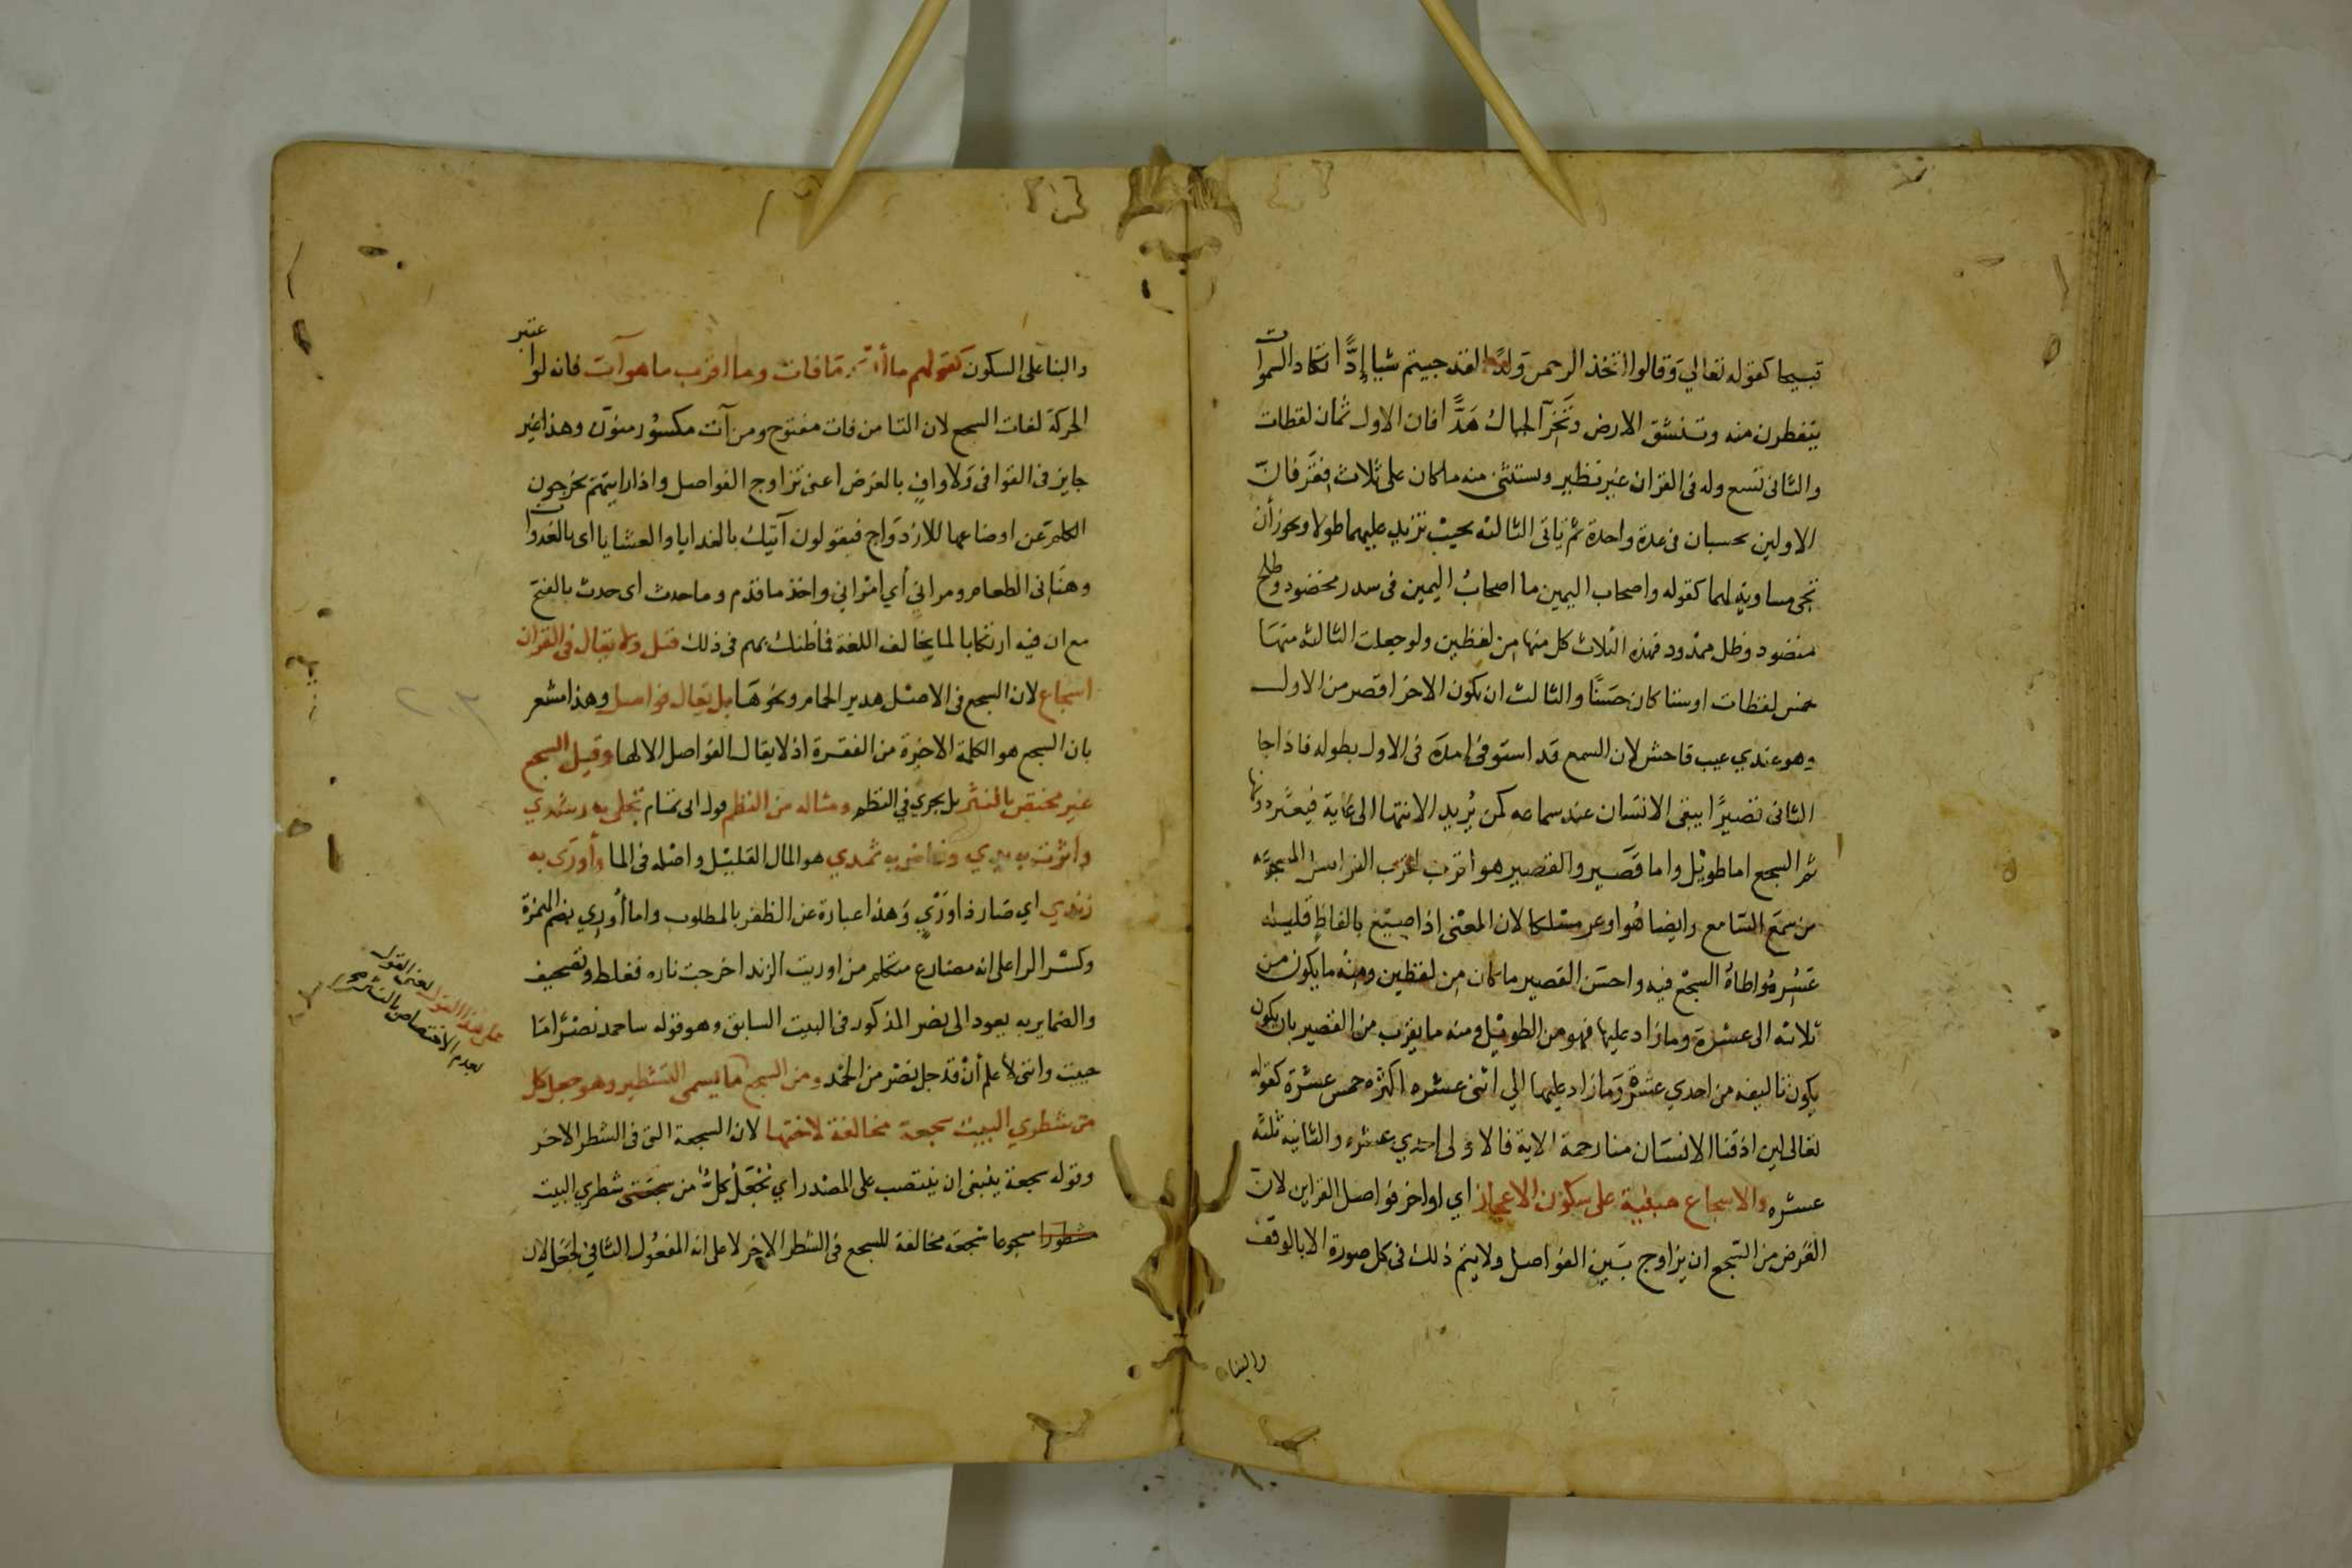 قبيحا كقوله تعالي وقالوا اتخذ الرحمن ولدا لقد جيتم شيا إدًّا تكاد السموات
يتفطرن منه وتنشق الارض وتخر الجبال هدًّا فان الاول ثمان لفظات
والثانى تسع وله فى القران غير نظير ويستثنى منه ما كان على ثلاث فقر فان
الاولين يحسبان فى عدة واحدة ثم ياتى الثالثه بحيث تزيد عليهما طولا ويجوز أن
تجى مساوية لهما كقوله واصحاب اليمين ما اصحاب اليمين فى سدر مخضود وطلح
منضود وظل ممدود فهذه الثلاث كل منها من لفظين ولو جعلت الثالثه منها
خمس لفظات او ستا كان حسنًا والثالث ان يكون الاخر اقصر من الاول
وهو عندي عيب فاحش لان السمع قد استوفى امده فى الاول بطوله فاذا جا
الثانى قصيرًا يبقى الانسان عند سماعه كمن يُريد الانتها الى غاية فيعثر دونها
ثم السجع اما طويل واما قصير والقصير هو اقرب الفراسن المسجوعه
من سمع السامع وايضا هُو اوعر مسلكا لان المعنى اذا صيغ بالفاظٍ قليله
عَسُر مُواطاة السجع فيه واحسن القصير ما كان من لفظين ومنه ما يكون من
ثلاثه الى عشرة وما زاد عليها فهو من الطويل ومنه ما يقرب من القصير بان يكون
يكون تاليفه من احدي عشرة وما زاد عليها الي اثنى عشره اكثره خمس عشرة كقوله
تعالى لين اذقنا الانسان منا رحمة الاية فالاولى احدي عشره والثانيه ثلثه
عشره والاسجاع مبنية على سكون الاعجاز اي اواخر فواصل القراين لان
الغرض من التسجع ان يزاوج بين الفواصل ولا يتم ذلك فى كل صورة الا بالوقف
والبنا
والبنا على السكون كقولهم ما أبعد ما فات وما اقرب ما هو آت فانه لوا عتبر
الحركة لفات السجع لان التا من فات مفتوح ومن آت مكسور منوّن وهذا غير
جايز فى القوافى ولا وافٍ بالغرض اعنى تزاوج الفواصل واذا رايتهم يخرجون
الكلم عن اوضاعها للازدواج فيقولون آتيك بالغدايا والعشايا اى بالغدوات
وهنانى الطعام ومرانى أي امراني واخذ ما قدم وما حدث اى حدث بالفتح
مع ان فيه ارتكابا لما يخالف اللغة فما ظنك بهم فى ذلك قيل ولا يقال فى القران
اسجاع لان السجع فى الاصل هدير الحمام ونحوها بل يقال فواصل وهذا مشعر
بان السجع هو الكلمة الاخيرة من الفقرة اذ لا يقال الفواصل الا لها وقيل السجع
غير مختص بالنثر بل يجري في النظم ومثاله من النظم قول ابى تمام تجلى به رشدي
واثرت به يدي وفاض به ثمدي هو المال القليل واصله فى الما وأورى به
زندي اي صار ذا وَرْيٍ وهذا عبارة عن الظفر بالمطلوب واما أُورِي بضم الهمزة
وكسر الرا على انه مضارع متكلم من اوريت الزند اخرجت ناره فغلط وتصحيف
والضماير به يعود الى نصر المذكور فى البيت السابق وهو قوله ساحمد نصرًا ما
حييت واننى لأعلم أن قد جل نصر من الحمد ومن السجع ما يسمى التشطير وهو جعل كل
من شطري البيت سجعة مخالفة لاختها لان السجعة التى فى الشطر الاخر
وقوله سجعة ينبغى ان ينتصب على المصدر اي تجعل كلٌّ من شطري البيت
مسجوعا سجعة مخالفة للسجع فى الشطر الاخر لا على انه المفعول الثاني لجعل لان
على هذا القول يعنى القول
بعدم الاختصاص بالنثر